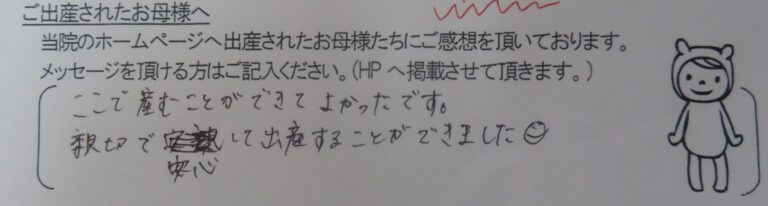 ご出産されたお母様へ
当院のホームページへ出産されたお母様たちにご感想を頂いております。
メッセージを頂ける方はご記入ください。(HPへ掲載させて頂きます。)
ここで産むことができてよかったです。
親切で安心して出産することができました